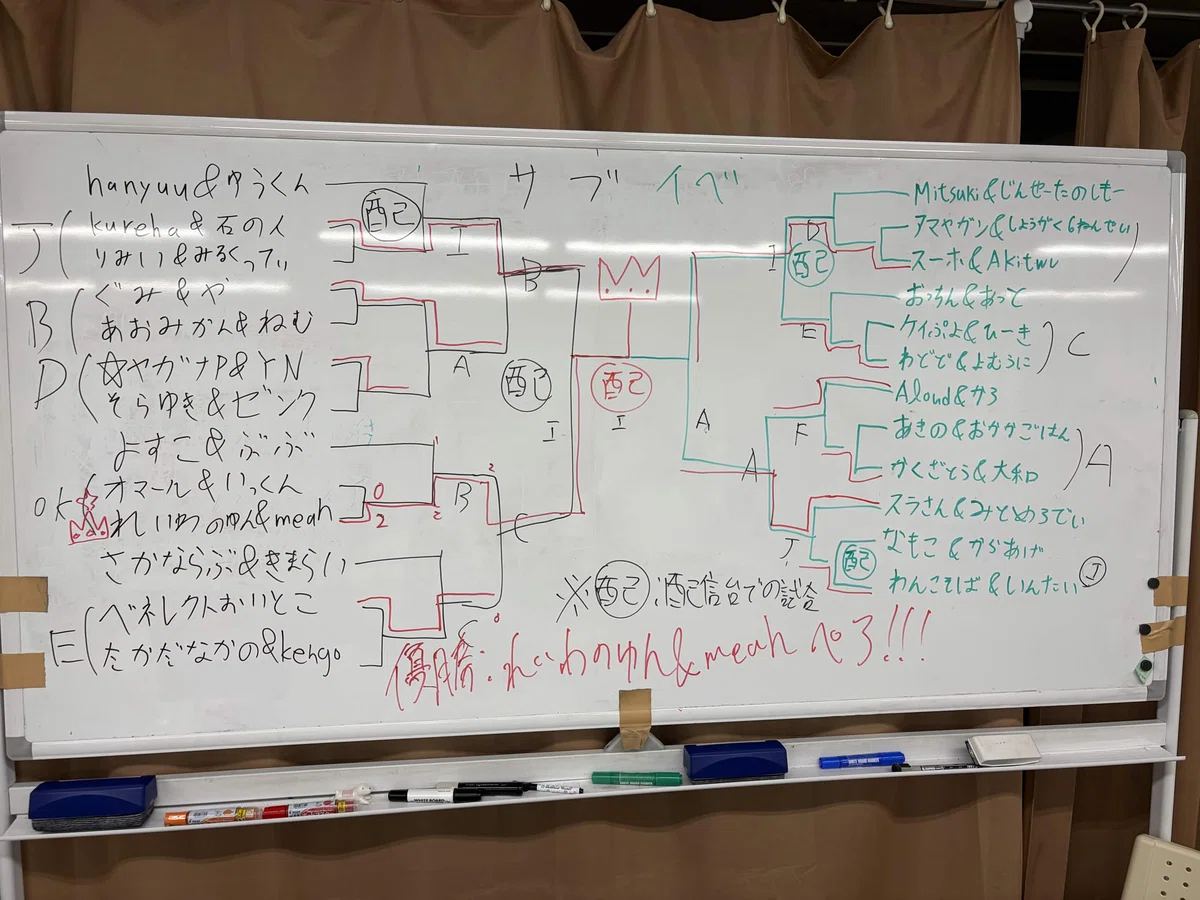 サブイベ
hanyuu&ゆうくん
J
kureha&石の人
りみい&みるくってぃ
B
ぐみ&や
あおみかん&ねむ
D
☆ヤガナP&YN
そらゆき&ゼンク
よすこ&ぶぶ
OK
オマール&いっくん
れいわのゆん&meah
さかならぶ&きまらい
E
ベネレクトおいとこ
たかだなかの&kengo
配
I
B
A
配
I
0
2
2
B
2
C
C
0
配
I
I
D
配
E
A
F
A
J
Mitsuki&じんせーたのしもー
アマヤガン&しょうがく6ねんせい
スーホ&Akitwu
おっちん&あっと
ケイぷよ&ひーき
C
わどど&よむうに
Aloud&サろ
あきの&おかかごはん
A
かくざとう&大和
スラさん&みとめろでい
なもこ&からあげ
配
わんこそば&いんたい
J
※配:配信台での試合
優勝:れいわのゆん&meahペろ!!!
WHITE BOARD